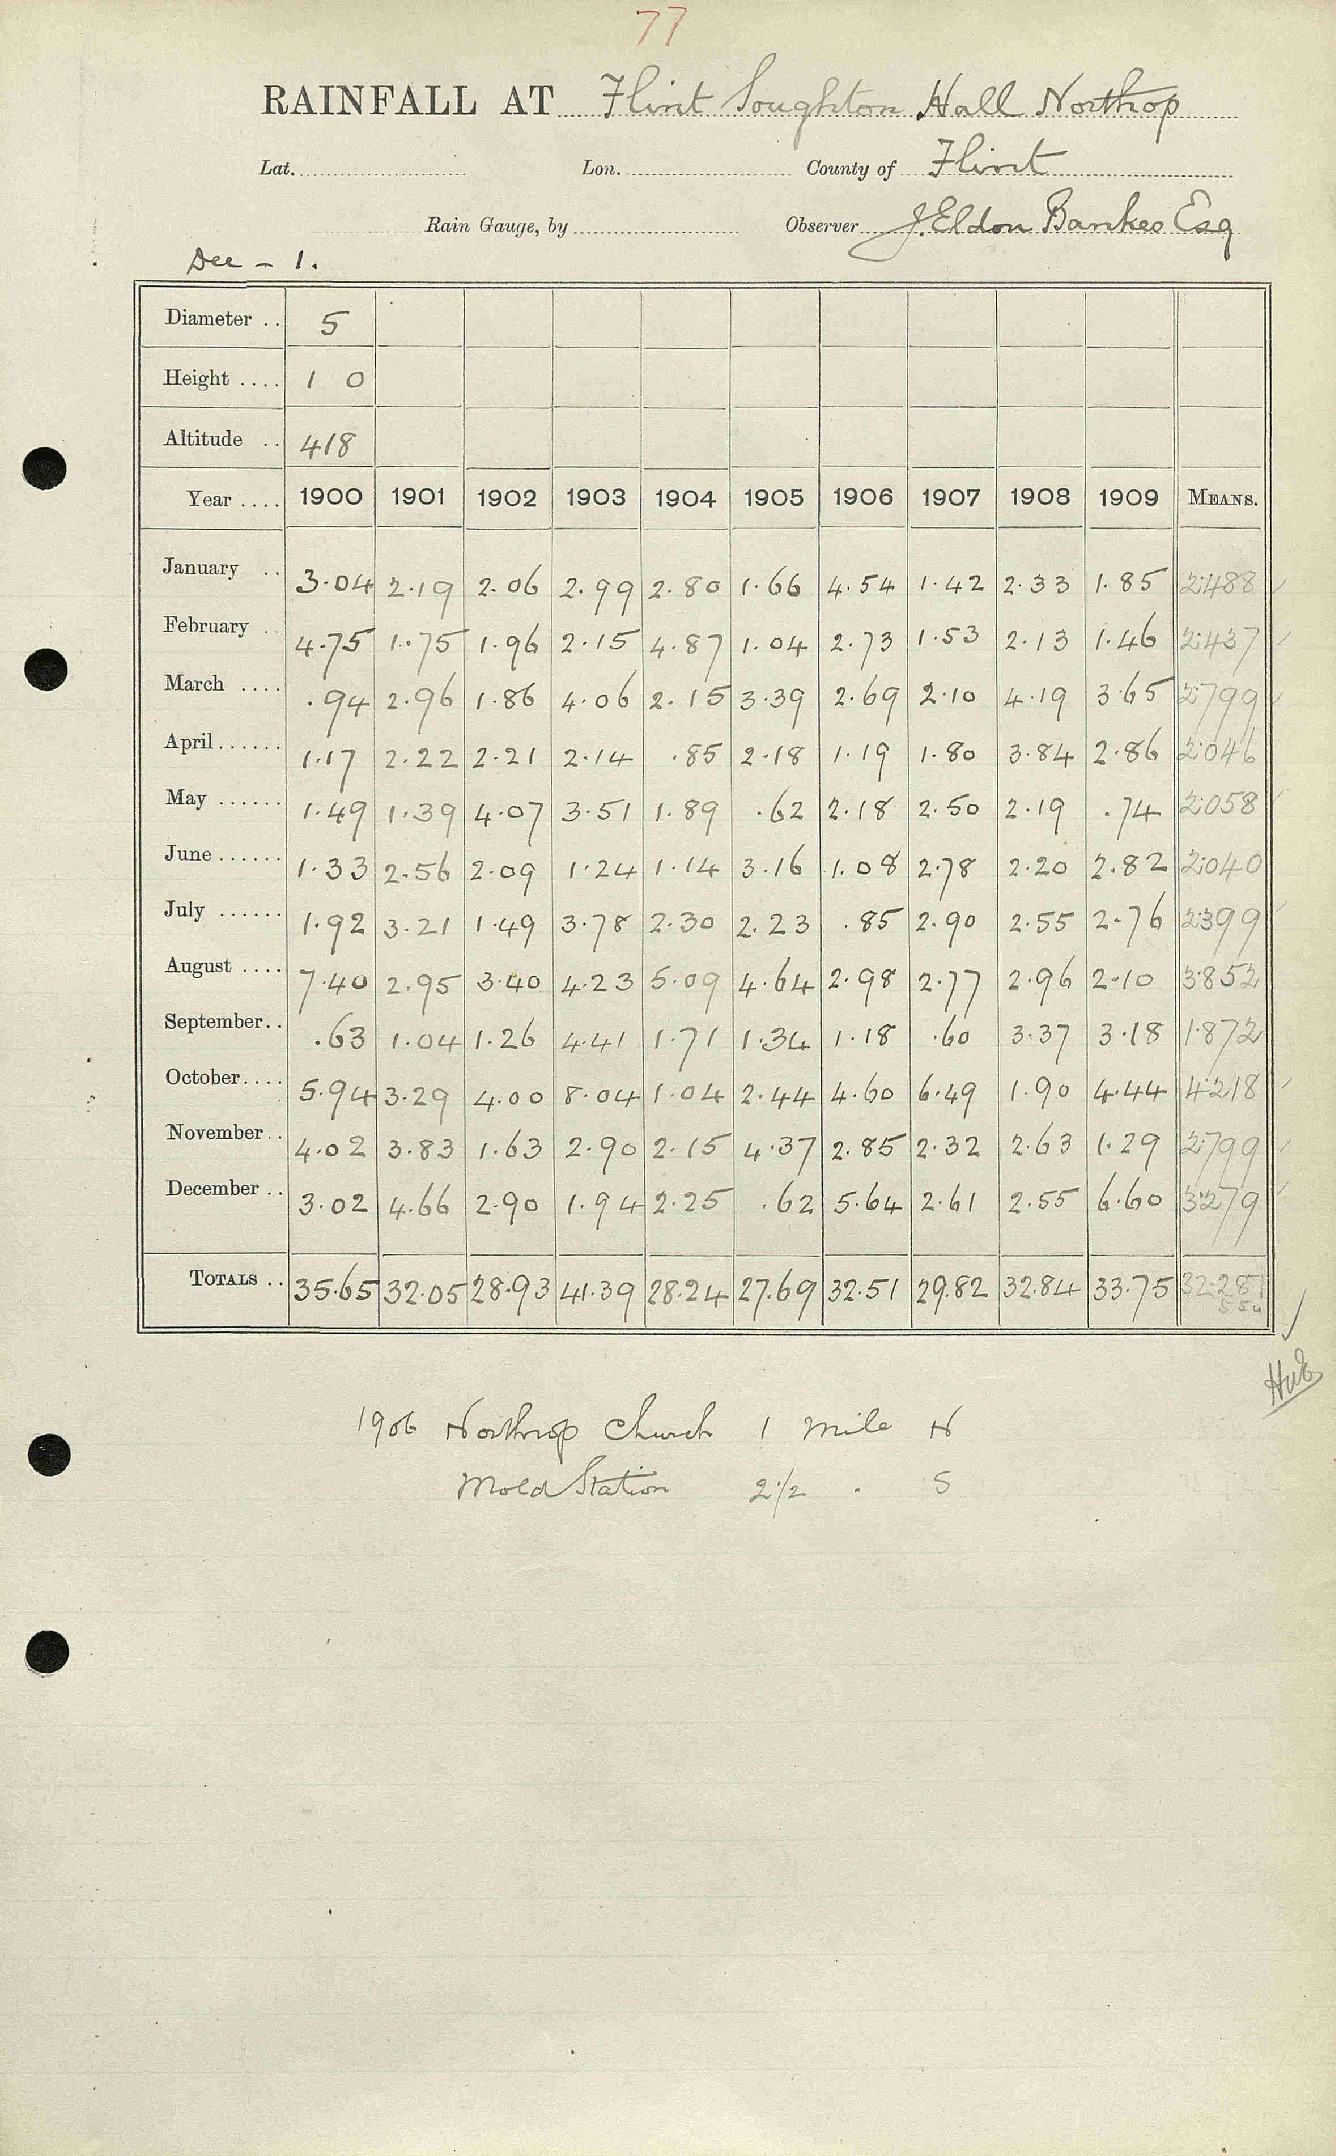 77
RAINFALL AT Flint Soughton Hall Northop
Lat. Lon. County of Flint
Rain Gauge, by Observer J. Eldon Bankes Esq
Dee - 1.
Diameter .. 5
Height .... 1 0
Altitude .. 418
Year .... 1900 1901 1902 1903 1904 1905 1906 1907 1908 1909 MEANS.
January .. 3.04 2.19 2.06 2.99 2.80 1.66 4.54 1.42 2.33 1.85 2.488
February .. 4.75 1.75 1.96 2.15 4.87 1.04 2.73 1.53 2.13 1.46 2.437
March .... .94 2.96 1.86 4.06 2.15 3.39 2.69 2.10 4.19 3.65 2.799
April ...... 1.17 2.22 2.21 2.14 .85 2.18 1.19 1.80 3.84 2.86 2.046
May ...... 1.49 1.39 4.07 3.51 1.89 .62 2.18 2.50 2.19 .74 2.058
June ...... 1.33 2.56 2.09 1.24 1.14 3.16 1.08 2.78 2.20 2.82 2.040
July ...... 1.92 3.21 1.49 3.78 2.30 2.23 .85 2.90 2.55 2.76 2.399
August .... 7.40 2.95 3.40 4.23 5.09 4.64 2.98 2.77 2.96 2.10 3.852
September .. .63 1.04 1.26 4.41 1.71 1.34 1.18 .60 3.37 3.18 1.872
October .... 5.94 3.29 4.00 8.04 1.04 2.44 4.60 6.49 1.90 4.44 4.218
November .. 4.02 3.83 1.63 2.90 2.15 4.37 2.85 2.32 2.63 1.29 2.799
December .. 3.02 4.66 2.90 1.94 2.25 .62 5.64 2.61 2.55 6.60 3.279
TOTALS .. 35.65 32.05 28.93 41.39 28.24 27.69 32.51 29.82 32.84 33.75 32.287
1906 Northop Church 1 mile N
Mold Station 2 1/2 . S